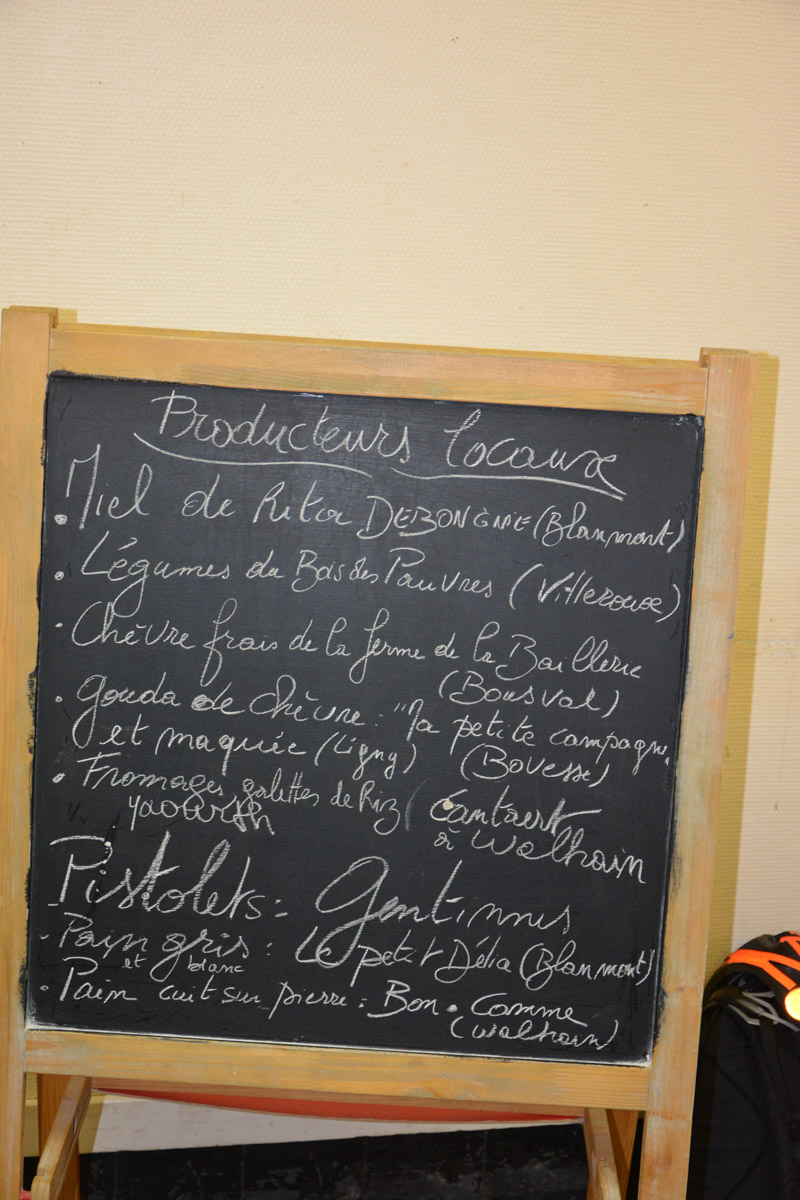 Producteurs locaux
• Miel de Rita DEBONGNIE (Blanmont)
• Légumes du Bois des Pauvres (Villeroux)
• Chèvre frais de la ferme de la Baillerie
(Bousval)
• Gouda de chèvre : "Ma petite campagne,
et maquée (Ligny) (Bovesse)
• Fromages, galettes de Riz (Cantaert
yaourth à Walhain
Pistolets : Gentinnes
- Pain gris : Le petit Délia (Blanmont)
et blanc
• Pain cuit sur pierre : Bon. Comme
(Walhain)